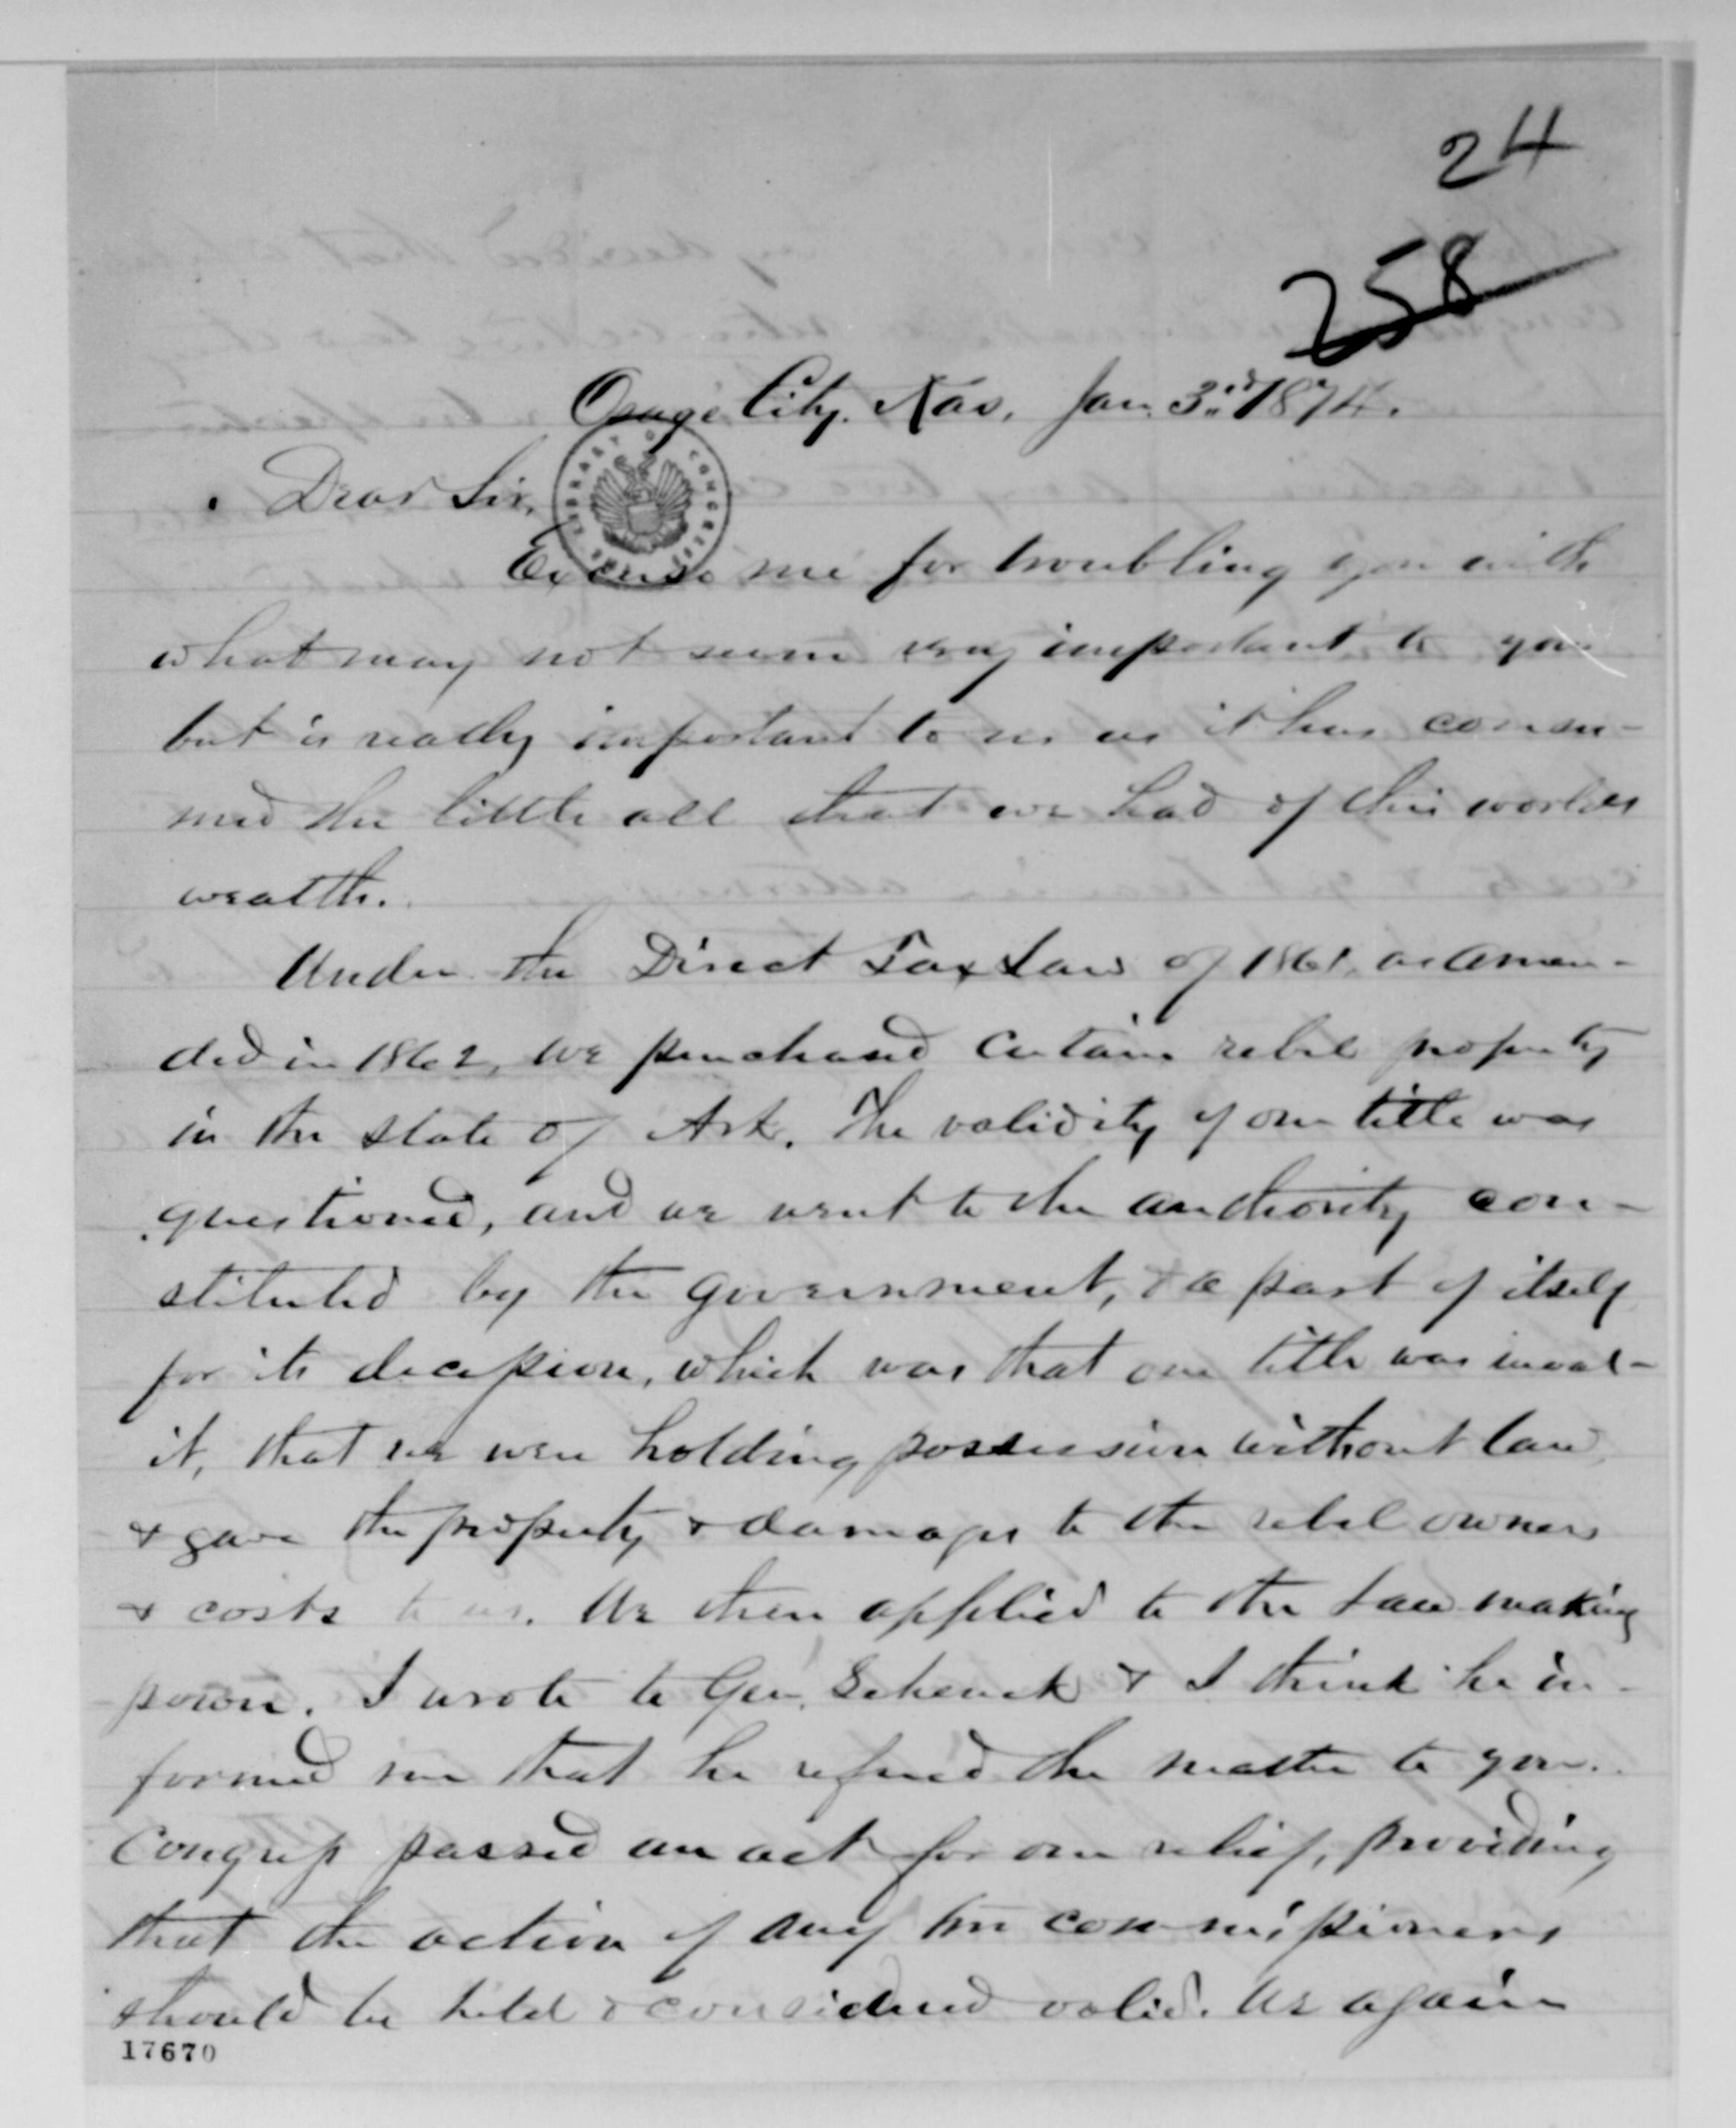 24
258
Osage City. Kas. Jan. 3rd 1874.
Dear Sir,
LIBRARY OF CONGRESS
Excuse me for troubling you with
what may not seem very important to you
but is really important to us as it has consu-
med the little all that we had of this worlds
wealth.
Under the Direct Tax Law of 1861, as amen-
ded in 1862, we purchased certain rebel property
in the state of Ark. The validity of our title was
questioned, and we went to the authority con-
stituted by the government, & a part of itself
for its decission, which was that our title was inval-
id, that we were holding possession without law,
& gave the property & damages to the rebel owners
& costs to us. We then applied to the Law making
power. I wrote to Gen. Schenck & I think he in-
formed me that he refered the matter to you.
Congress passed an act for our relief, providing
that the action of any two commissioners
should be held & considered valid. We again
17670